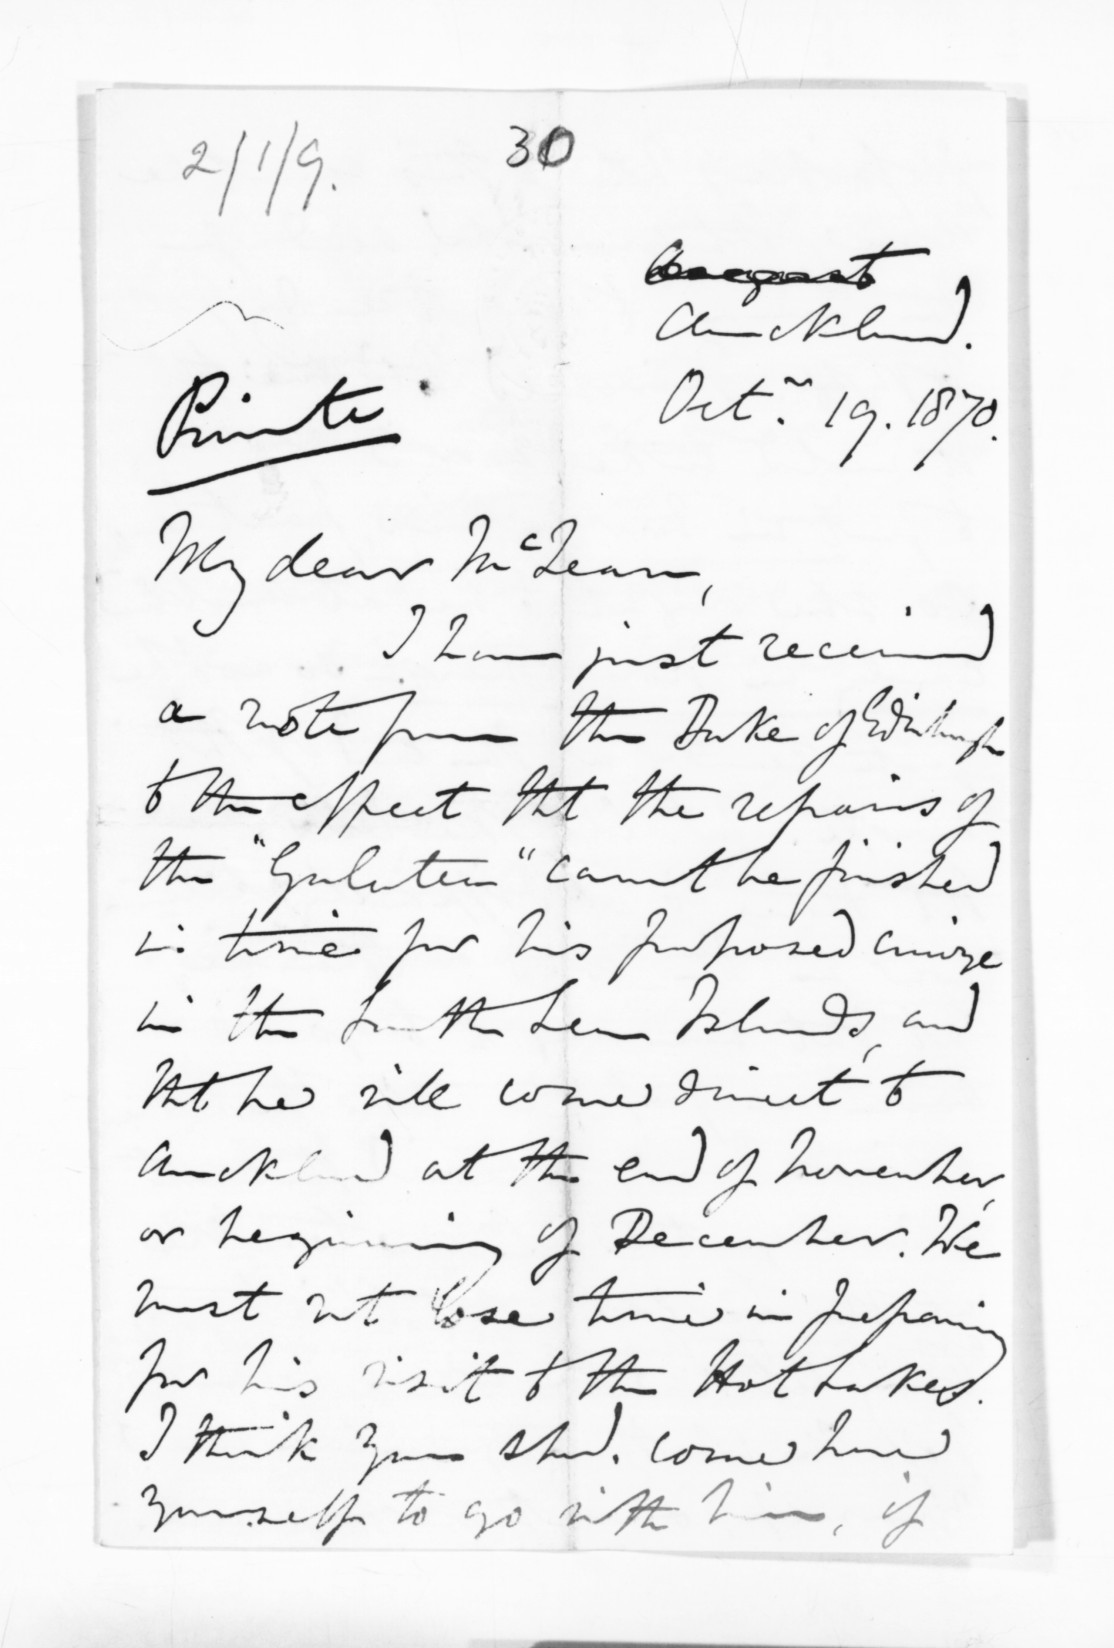 2/1/9.
30
Auckland.
Octr. 19. 1870.
Private
My dear McLean,
I have just received
a note from the Duke of Edinburgh
to the effect tht the repairs of
the "Galatea" cannot be finished
in time for his proposed cruize
in the South Sea Islands, and
tht he will come direct to
Auckland at the end of November,
or beginning of December. We
must not lose time in preparing
for his visit to the Hot Lakes.
I think you shd. come here
yourself to go with him, if